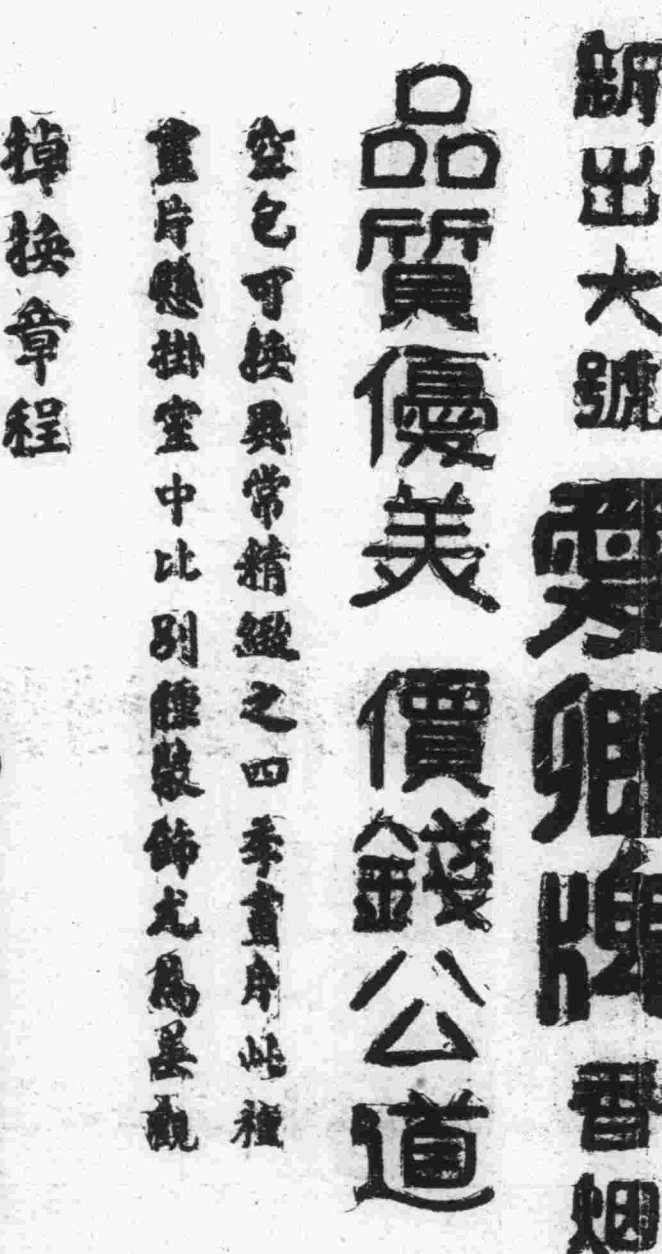 新出大號愛卿牌香烟
品質優美 價錢公道
空包可換異常精緻之四季畫片此種
畫片懸掛室中比別種裝飾尤為美觀
掉換章程